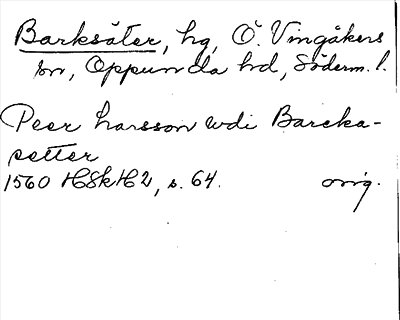 Barksäter, hg, Ö. Vingåkers
sn, Oppunda hd, Söderm. l.
Peer Larsson wdi Barcka-
setter
1560 HSkH2, s. 64. orig.